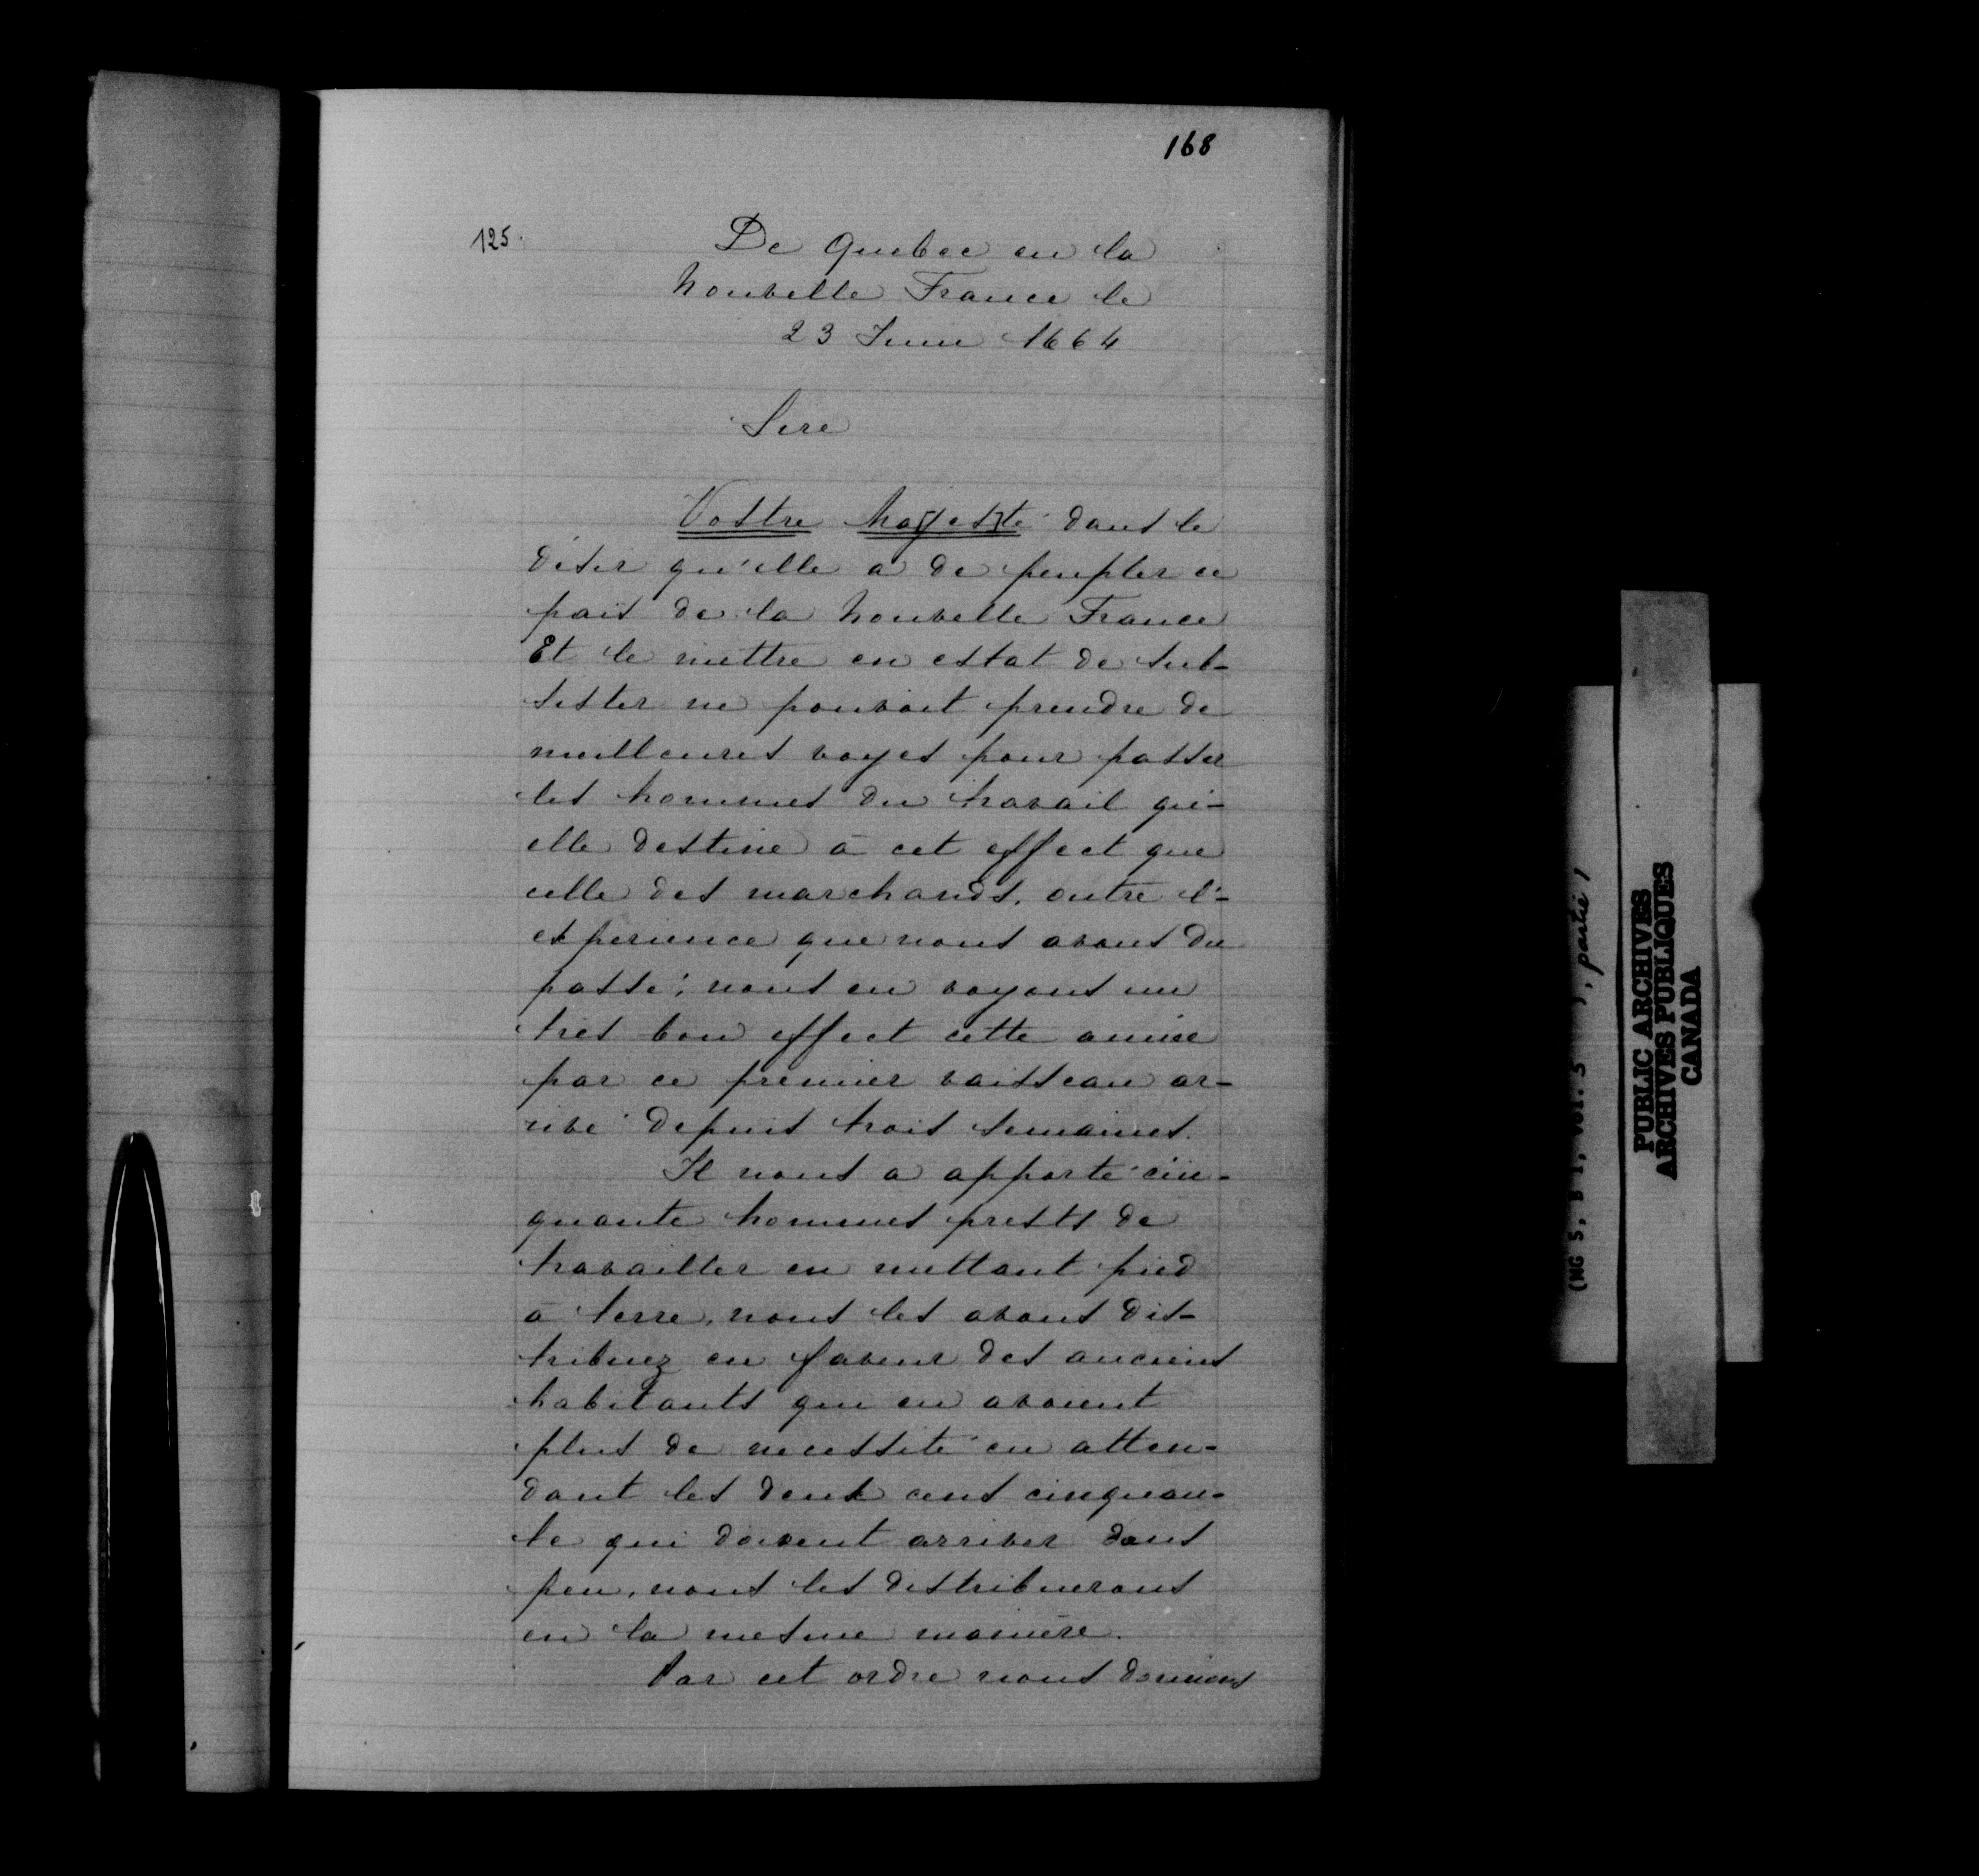 168
125.
De Quebec en la
Nouvelle France le
23 Juin 1664
Sire
Vostre Ma[jes]té dans le
désir qu'elle a de peupler ce
païs de la Nouvelle France
Et le mettre en estat de sub-
sister ne pouvoit prendre de
meilleures voyes pour passer
les hommes du travail qu'-
elle destine à cet effect que
celle des marchands, outre l'-
experience que nous avons du
passé; nous en voyons un
très bon effect cette année
par ce premier vaisseau ar-
rivé depuis trois semaines.
Il nous a apporté cin-
quante hommes prests de
travailler en mettant pied
à terre, nous les avons dis-
tribuez en faveur des anciens
habitants qui en avoient
plus de necessité en atten-
dant les deux cens cinquan-
te qui doivent arriver dans
peu, nous les distribuerons
en la mesme manière.
Par cet ordre nous donnons
(MG 5, B 1, vol. 5 , partie 1
PUBLIC ARCHIVES
ARCHIVES PUBLIQUES
CANADA